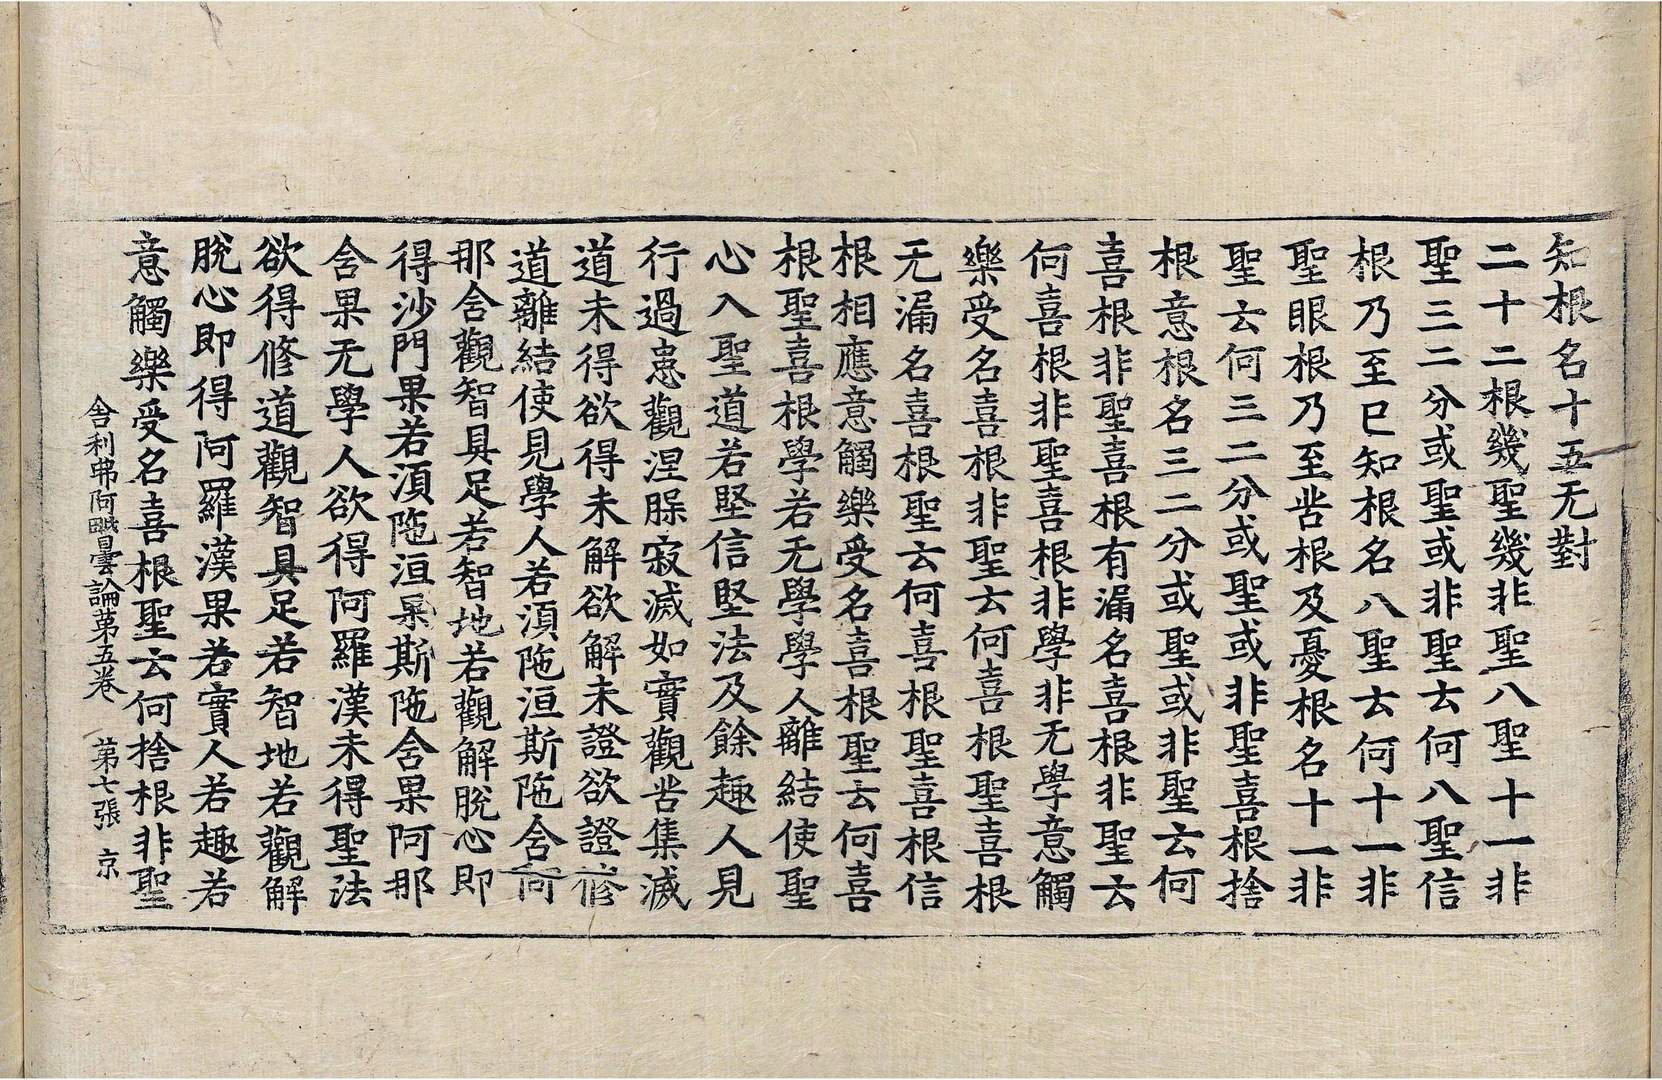 知根名十五无對
二十二根幾聖幾非聖八聖十一非
聖三二分或聖或非聖云何八聖信
根乃至已知根名八聖云何十一非
聖眼根乃至苦根及憂根名十一非
聖云何三二分或聖或非聖喜根捨
根意根名三二分或聖或非聖云何
喜根非聖喜根有漏名喜根非聖云
何喜根非聖喜根非學非无學意觸
樂受名喜根非聖云何喜根聖喜根
无漏名喜根聖云何喜根聖喜根信
根相應意觸樂受名喜根聖云何喜
根聖喜根學若无學學人離結使聖
心入聖道若堅信堅法及餘趣人見
行過患觀涅槃寂滅如實觀苦集滅
道未得欲得未解欲解未證欲證修
道離結使見學人若須陁洹斯陁含阿
那含觀智具足若智地若觀解脫心即
得沙門果若須陁洹果斯陁含果阿那
含果无學人欲得阿羅漢未得聖法
欲得修道觀智具足若智地若觀解
脫心即得阿羅漢果若實人若趣若
意觸樂受名喜根聖云何捨根非聖
舍利弗阿毗曇論苐五卷 苐七張 京